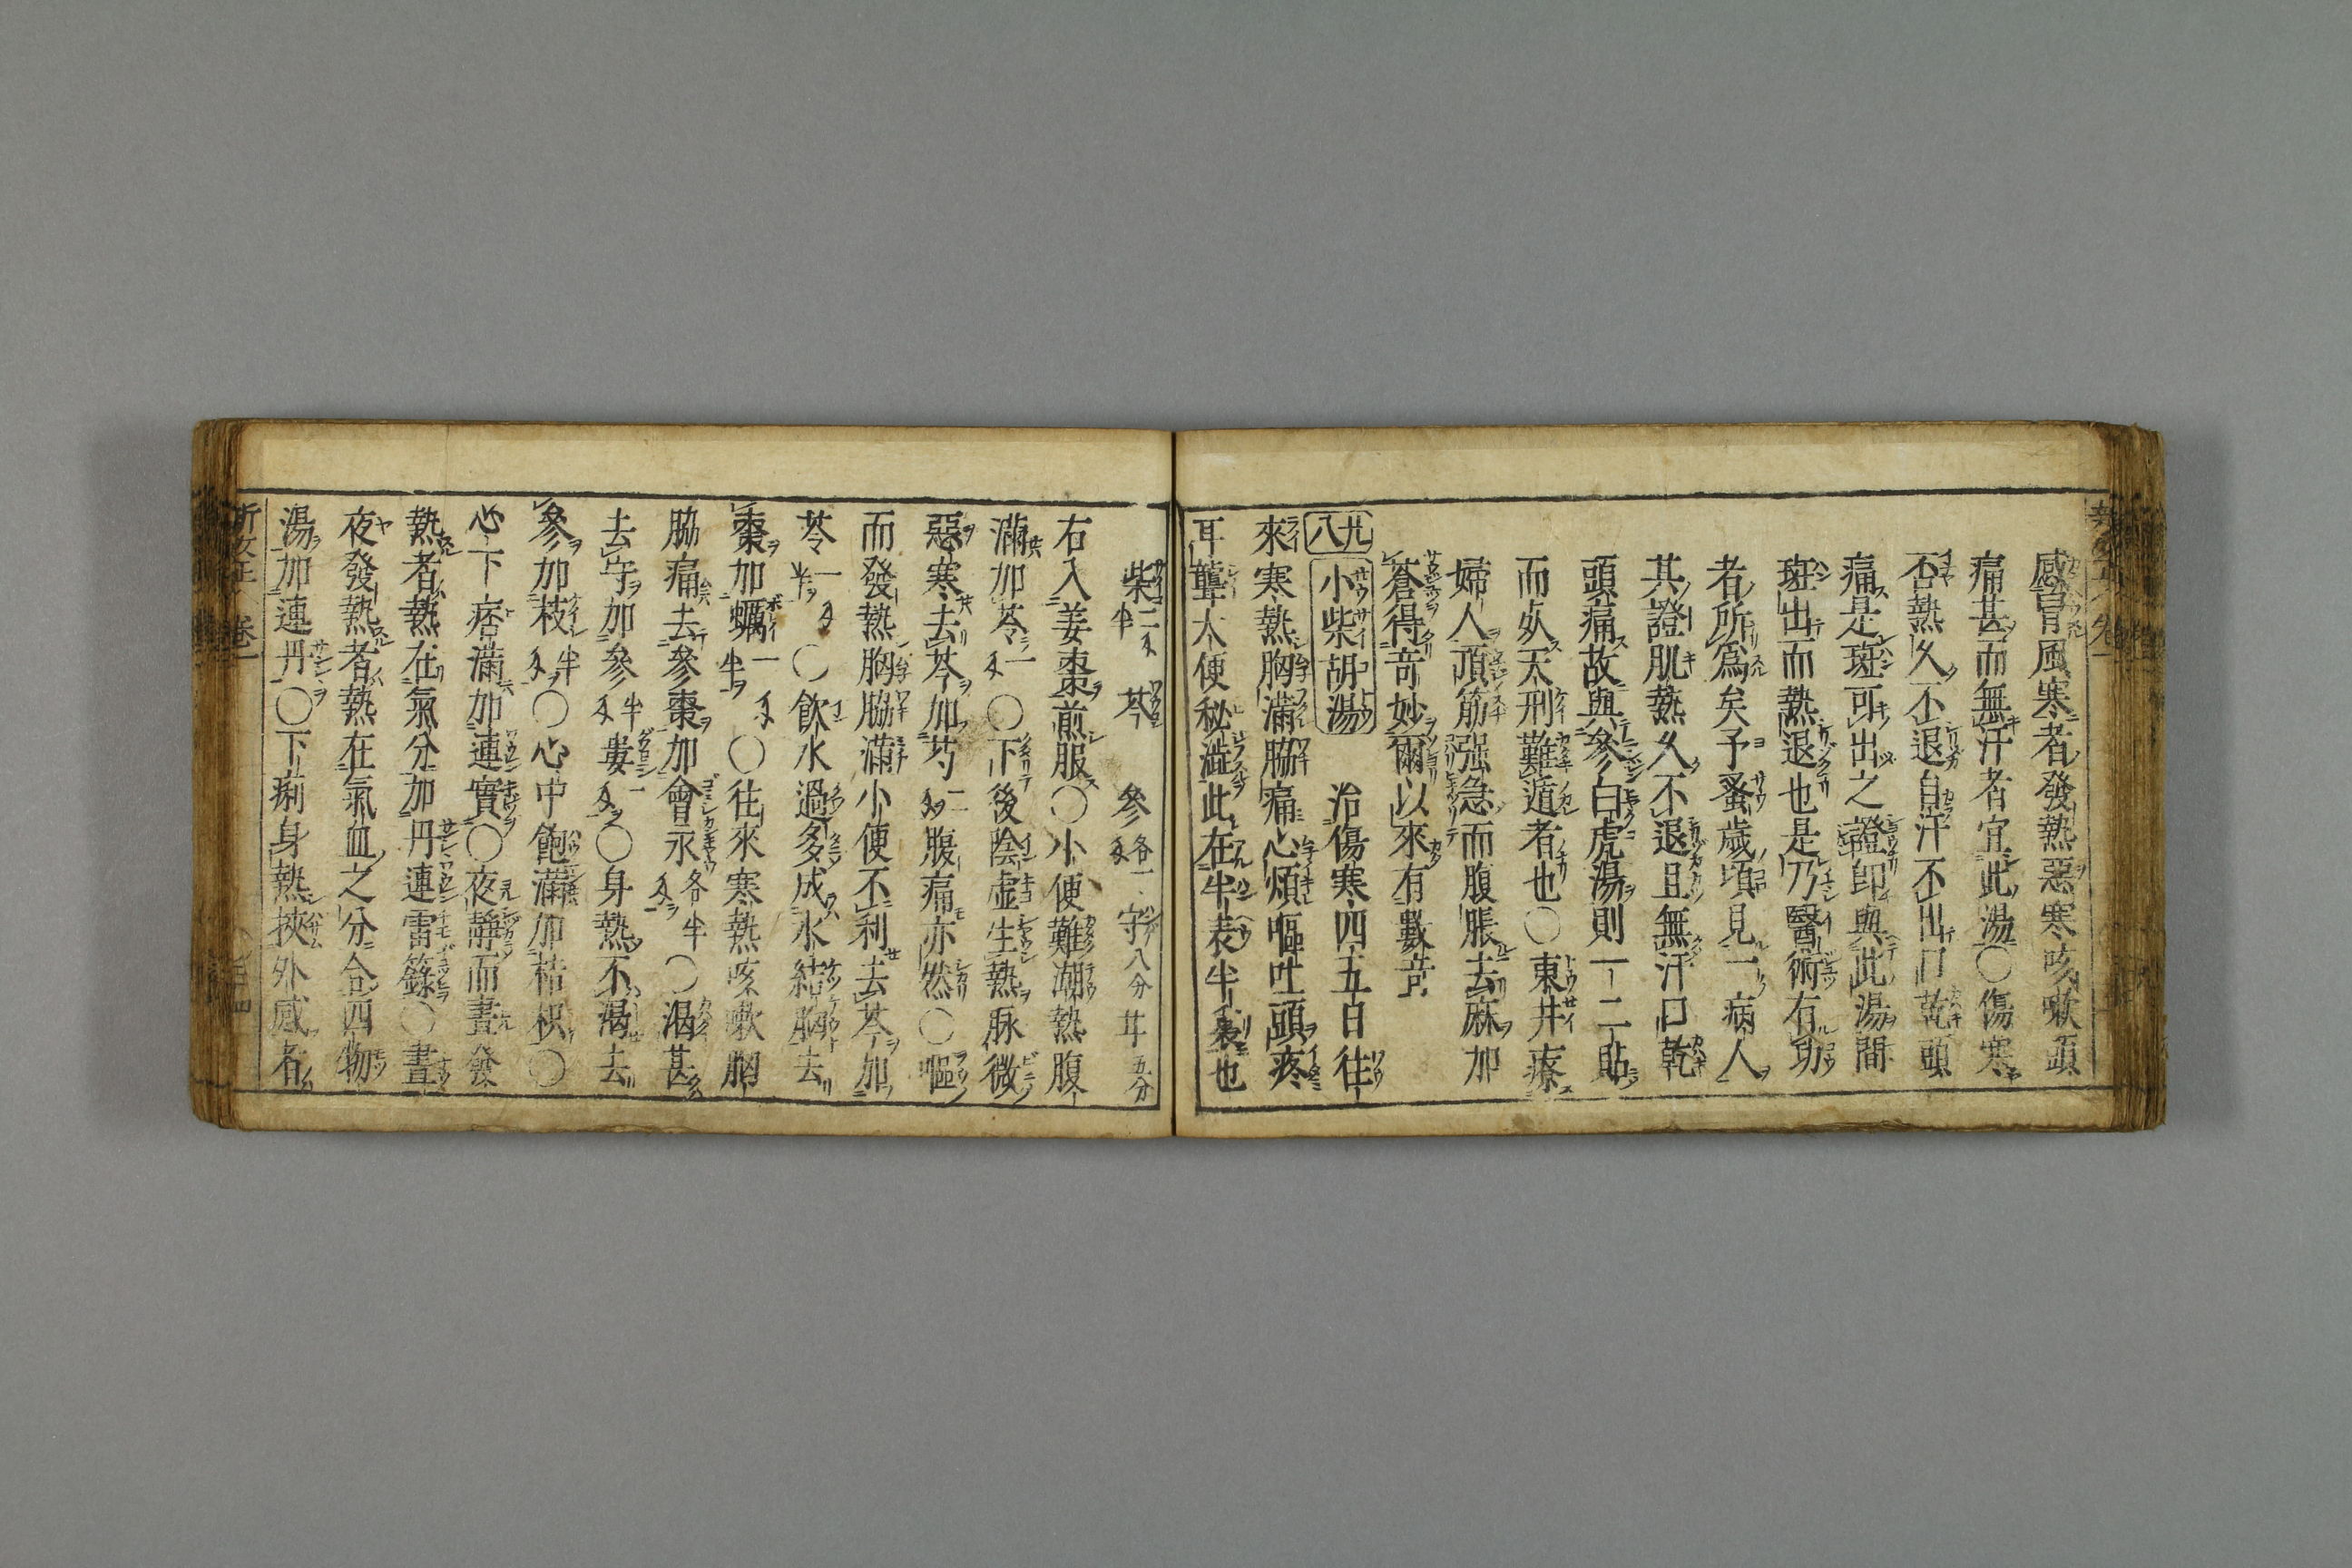 感冒風寒者發熱惡寒咳嗽頭
痛甚而無汗者宜此湯〇傷寒
否熱久不退自汗不出口乾頭
痛是斑可出之證卽與此湯間
斑出而熱退也是乃醫術有功
者所爲矣予蚤歲頃見一病人
其證肌熱久不退且無汗口乾
頭痛故與參白虎湯則一二貼
而夭刑難遁者也〇東井療
婦人頂筋强急而腹脹去麻加
蒼得竒妙爾以來有數
八九
小柴胡湯 治傷寒四五日往
來寒熱胸滿脇痛心煩嘔吐頭疼
耳聾大便秘澁此在半表半裏也
柴二半 芩 參各一 守八分 廿五分
右入姜棗煎服〇小便難潮熱腹
滿加苓一〇下後陰虛生熱脉微
惡寒去芩加芍二腹痛亦然〇嘔
而發熱胸脇滿小便不利去芩加
苓一〇飲水過多成水結胸去
棗加蠣一半〇往來寒熱咳嗽胸
脇痛去參棗加會永各半〇渴甚
去守加參半蔞一〇身熱不渴去
參加枝半〇心中飽滿加桔枳〇
心下痞滿加連實〇夜靜而晝發
熱者熱在氣分加丹連雷錄〇晝
夜發熱者熱在氣血之分合四物
湯加連丹〇下痢身熱挾外感者
卷一